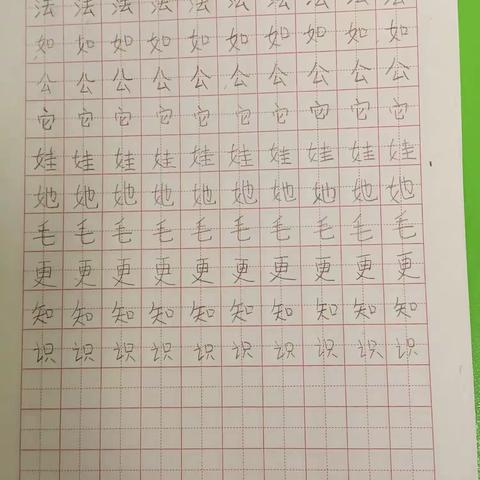 法法法法法法法法法法
如如如如如如如如如如
公公公公公公公公公公
它它它它它它它它它它
娃娃娃娃娃娃娃娃娃娃
她她她她她她她她她她
毛毛毛毛毛毛毛毛毛毛
更更更更更更更更更更
知知知知知知知知知知
识识识识识识识识识识